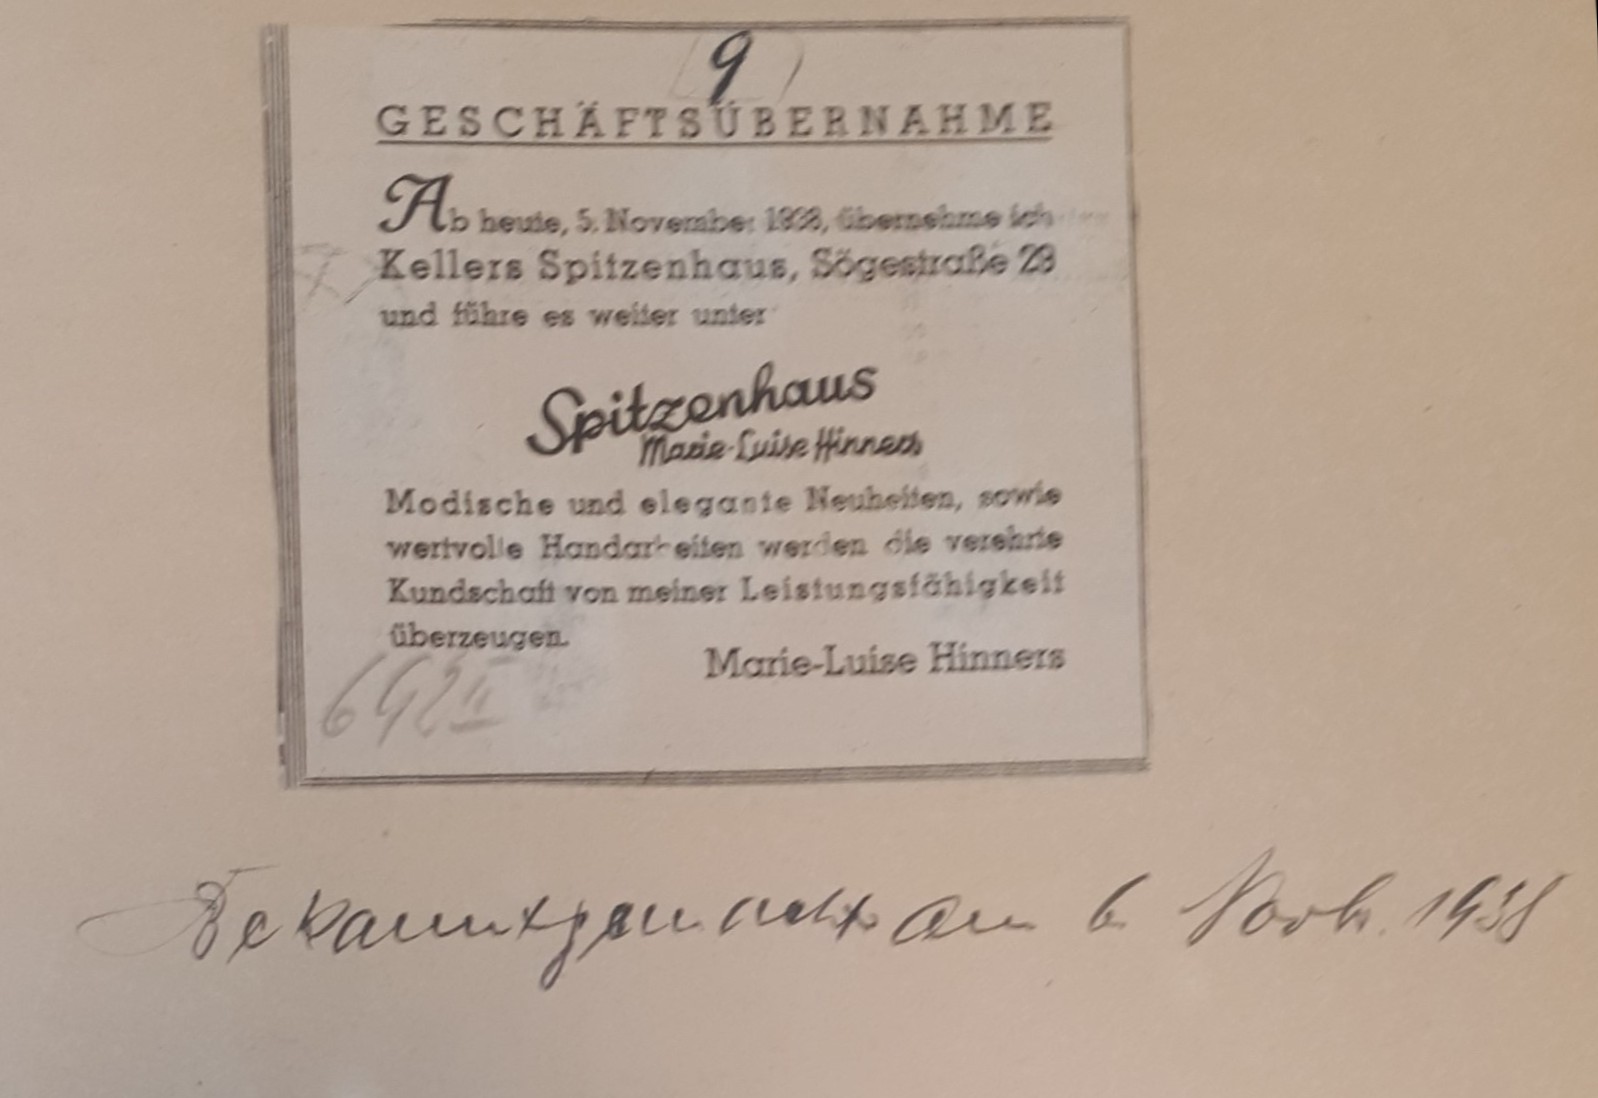 9
GESCHÄFTSÜBERNAHME
Ab heute, 5. November 1938, übernehme ich
Kellers Spitzenhaus, Sögestraße 28
und führe es weiter unter
Spitzenhaus
Marie-Luise Hinners
Modische und elegante Neuheiten, sowie
wertvolle Handarbeiten werden die verehrte
Kundschaft von meiner Leistungsfähigkeit
überzeugen.
Marie-Luise Hinners
Bekanntgemacht am 6 Novb. 1938